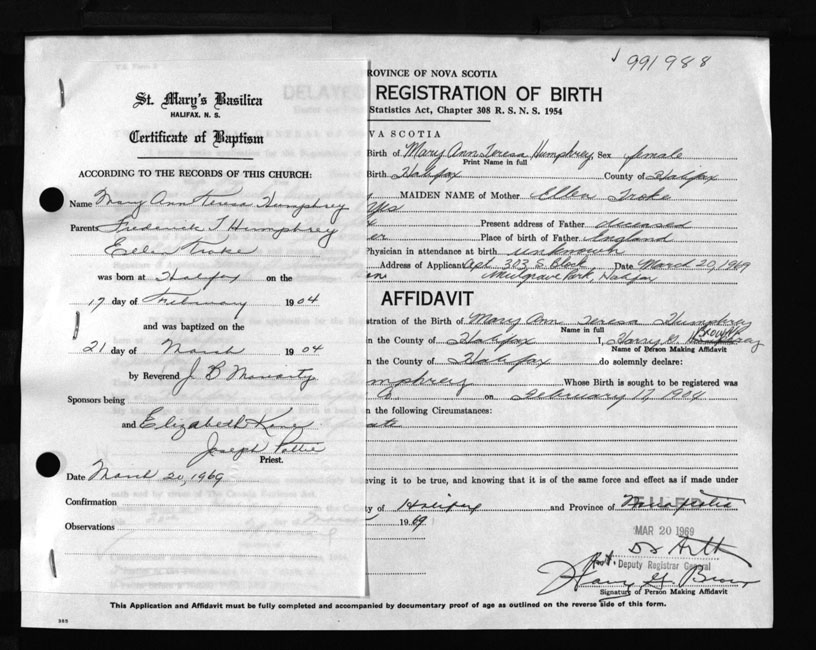 991988
St. Mary's Basilica
HALIFAX, N. S.
Certificate of Baptism
ACCORDING TO THE RECORDS OF THIS CHURCH:
Name Mary Ann Teresa Humphrey
Parents Frederick T Humphrey
Ellen Troke
was born at Halifax on the
17 day of February 1904
and was baptized on the
21 day of March 1904
by Reverend J B Moriarty
Sponsors being
and Elizabeth Kane
Joseph Pottie
Priest.
Date March 20, 1969
Confirmation
Observations
ROVINCE OF NOVA SCOTIA
DELAYED REGISTRATION OF BIRTH
Statistics Act, Chapter 308 R. S. N. S. 1954
VA SCOTIA
Birth of Mary Ann Teresa Humphrey Sex female
Print Name in full
Birth Halifax County of Halifax
MAIDEN NAME of Mother Ellen Troke
Yes
Present address of Father deceased
er Place of birth of Father England
Physician in attendance at birth unknown
Address of Applicant Apt 303 S. Block Date March 20, 1969
Mulgrave Park, Halifax
AFFIDAVIT
stration of the Birth of Mary Ann Teresa Humphrey
Name in full
in the County of Halifax I, Harry G. Humphrey BROWN
Name of Person Making Affidavit
in the County of Halifax do solemnly declare:
umphrey Whose Birth is sought to be registered was
on February 17, 1904
n the following Circumstances:
ficate
lieving it to be true, and knowing that it is of the same force and effect as if made under
ty of Halifax and Province of Nova Scotia
1969
FILED
MAR 20 1969
Deputy Registrar General
Harry G. Brown
Signature of Person Making Affidavit
This Application and Affidavit must be fully completed and accompanied by documentary proof of age as outlined on the reverse side of this form.